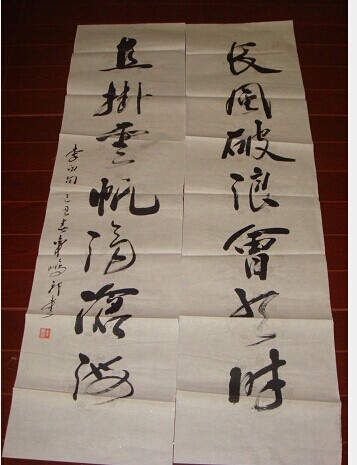 長風破浪會有時
直掛雲帆濟滄海
李白句